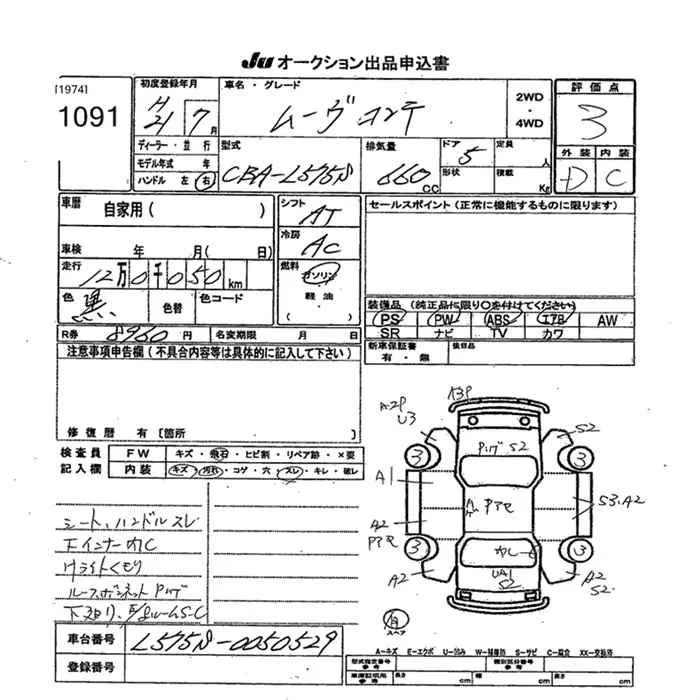 Ju オークション出品申込書
[1974]
1091
初度登録年月
H21 7月
車名・グレード
ムーヴコンテ
2WD・4WD
評価点
3
ディーラー・並行
モデル年式 年
ハンドル 左 右
型式
CBA-L575S
排気量
660 CC
ドア 5
形状
定員 人
積載 Kg
外装 内装
D C
車歴 自家用( )
車検 年 月( 日)
走行 12万0千050km
色 黒 色替 色コード
R券 8960円 名変期限 月 日
シフト AT
冷房 AC
燃料 ガソリン
軽油
( )
セールスポイント(正常に機能するものに限ります)
装備品(純正品に限り○を付けてください)
PS PW ABS エアB AW
SR ナビ TV カワ
新車保証書 有・無 後日品
注意事項申告欄(不具合内容等は具体的に記入して下さい)
修復歴 有〔箇所
検査員記入欄
FW キズ・飛石・ヒビ割・リペア跡・×要
内装 キズ・汚れ・コゲ・穴・スレ・キレ・破レ
シート、ハンドルスレ
Fインナー内C
Hライトくもり
ルーフボンネットPハゲ
A3P
A2P
U3
S2
Pハゲ S2
3
3
A1
Pアセ
S3.A2
A2
Pアセ
3
3
UA1
S2
A2
A2
S2
スペア
車台番号 L575S-0050529
登録番号
A-キズ E-エクボ U-凹み W-補修跡 S-サビ C-腐食 XX-交換済
型式指定番号 参考
類別区分番号 参考
車庫証明用 参考 長さ cm 幅 cm 高さ cm